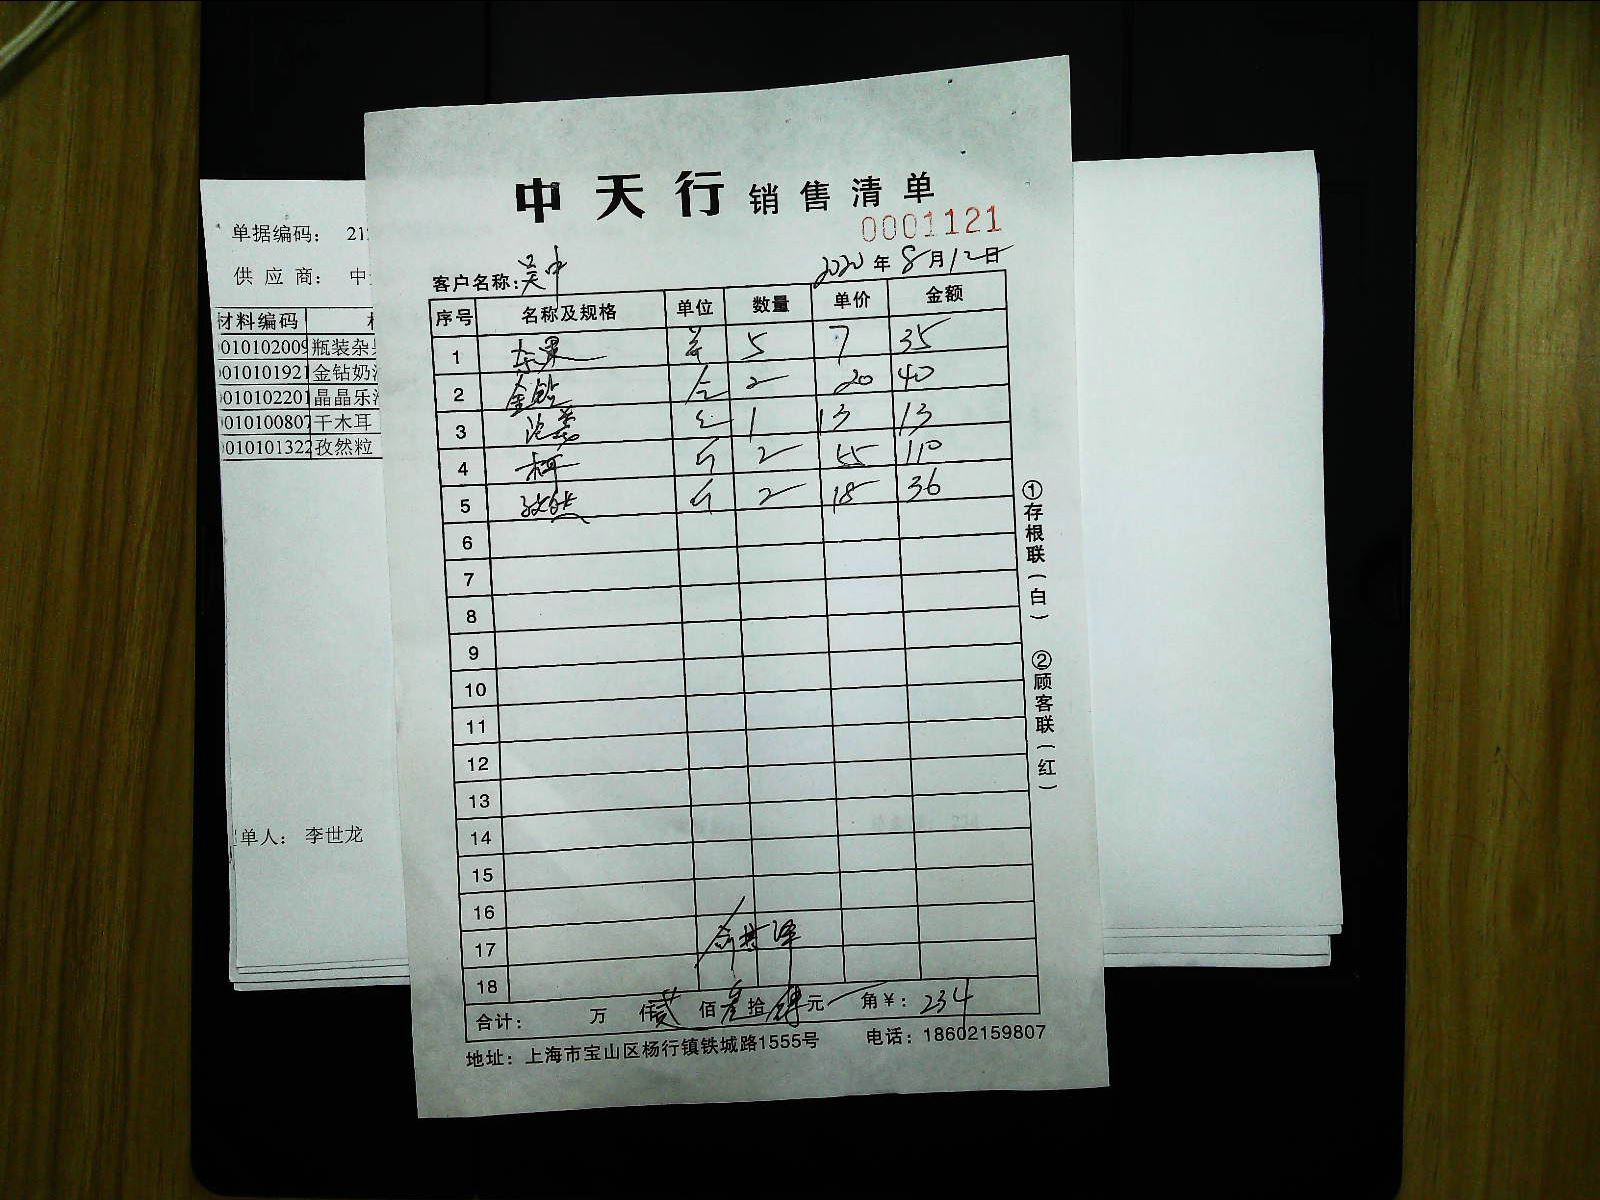 中天行 销售清单
0001121
客户名称: 吴中 2020年8月12日
序号 名称及规格 单位 数量 单价 金额
1 5 7 35
2 金钻 2 20 40
3 1 13 13
4 斤 2 55 110
5 孜然 斤 2 18 36
6
7
8
9
10
11
12
13
14
15
16
17
18
合计: 万 仟贰佰叁拾肆元 角¥: 234
地址: 上海市宝山区杨行镇铁城路1555号 电话: 18602159807
①存根联(白)
②顾客联(红)
单据编码: 21
供应商: 中
材料编码
010102009 瓶装杂
010101921 金钻奶
010102201 晶晶乐
010100807 干木耳
010101322 孜然粒
单人: 李世龙